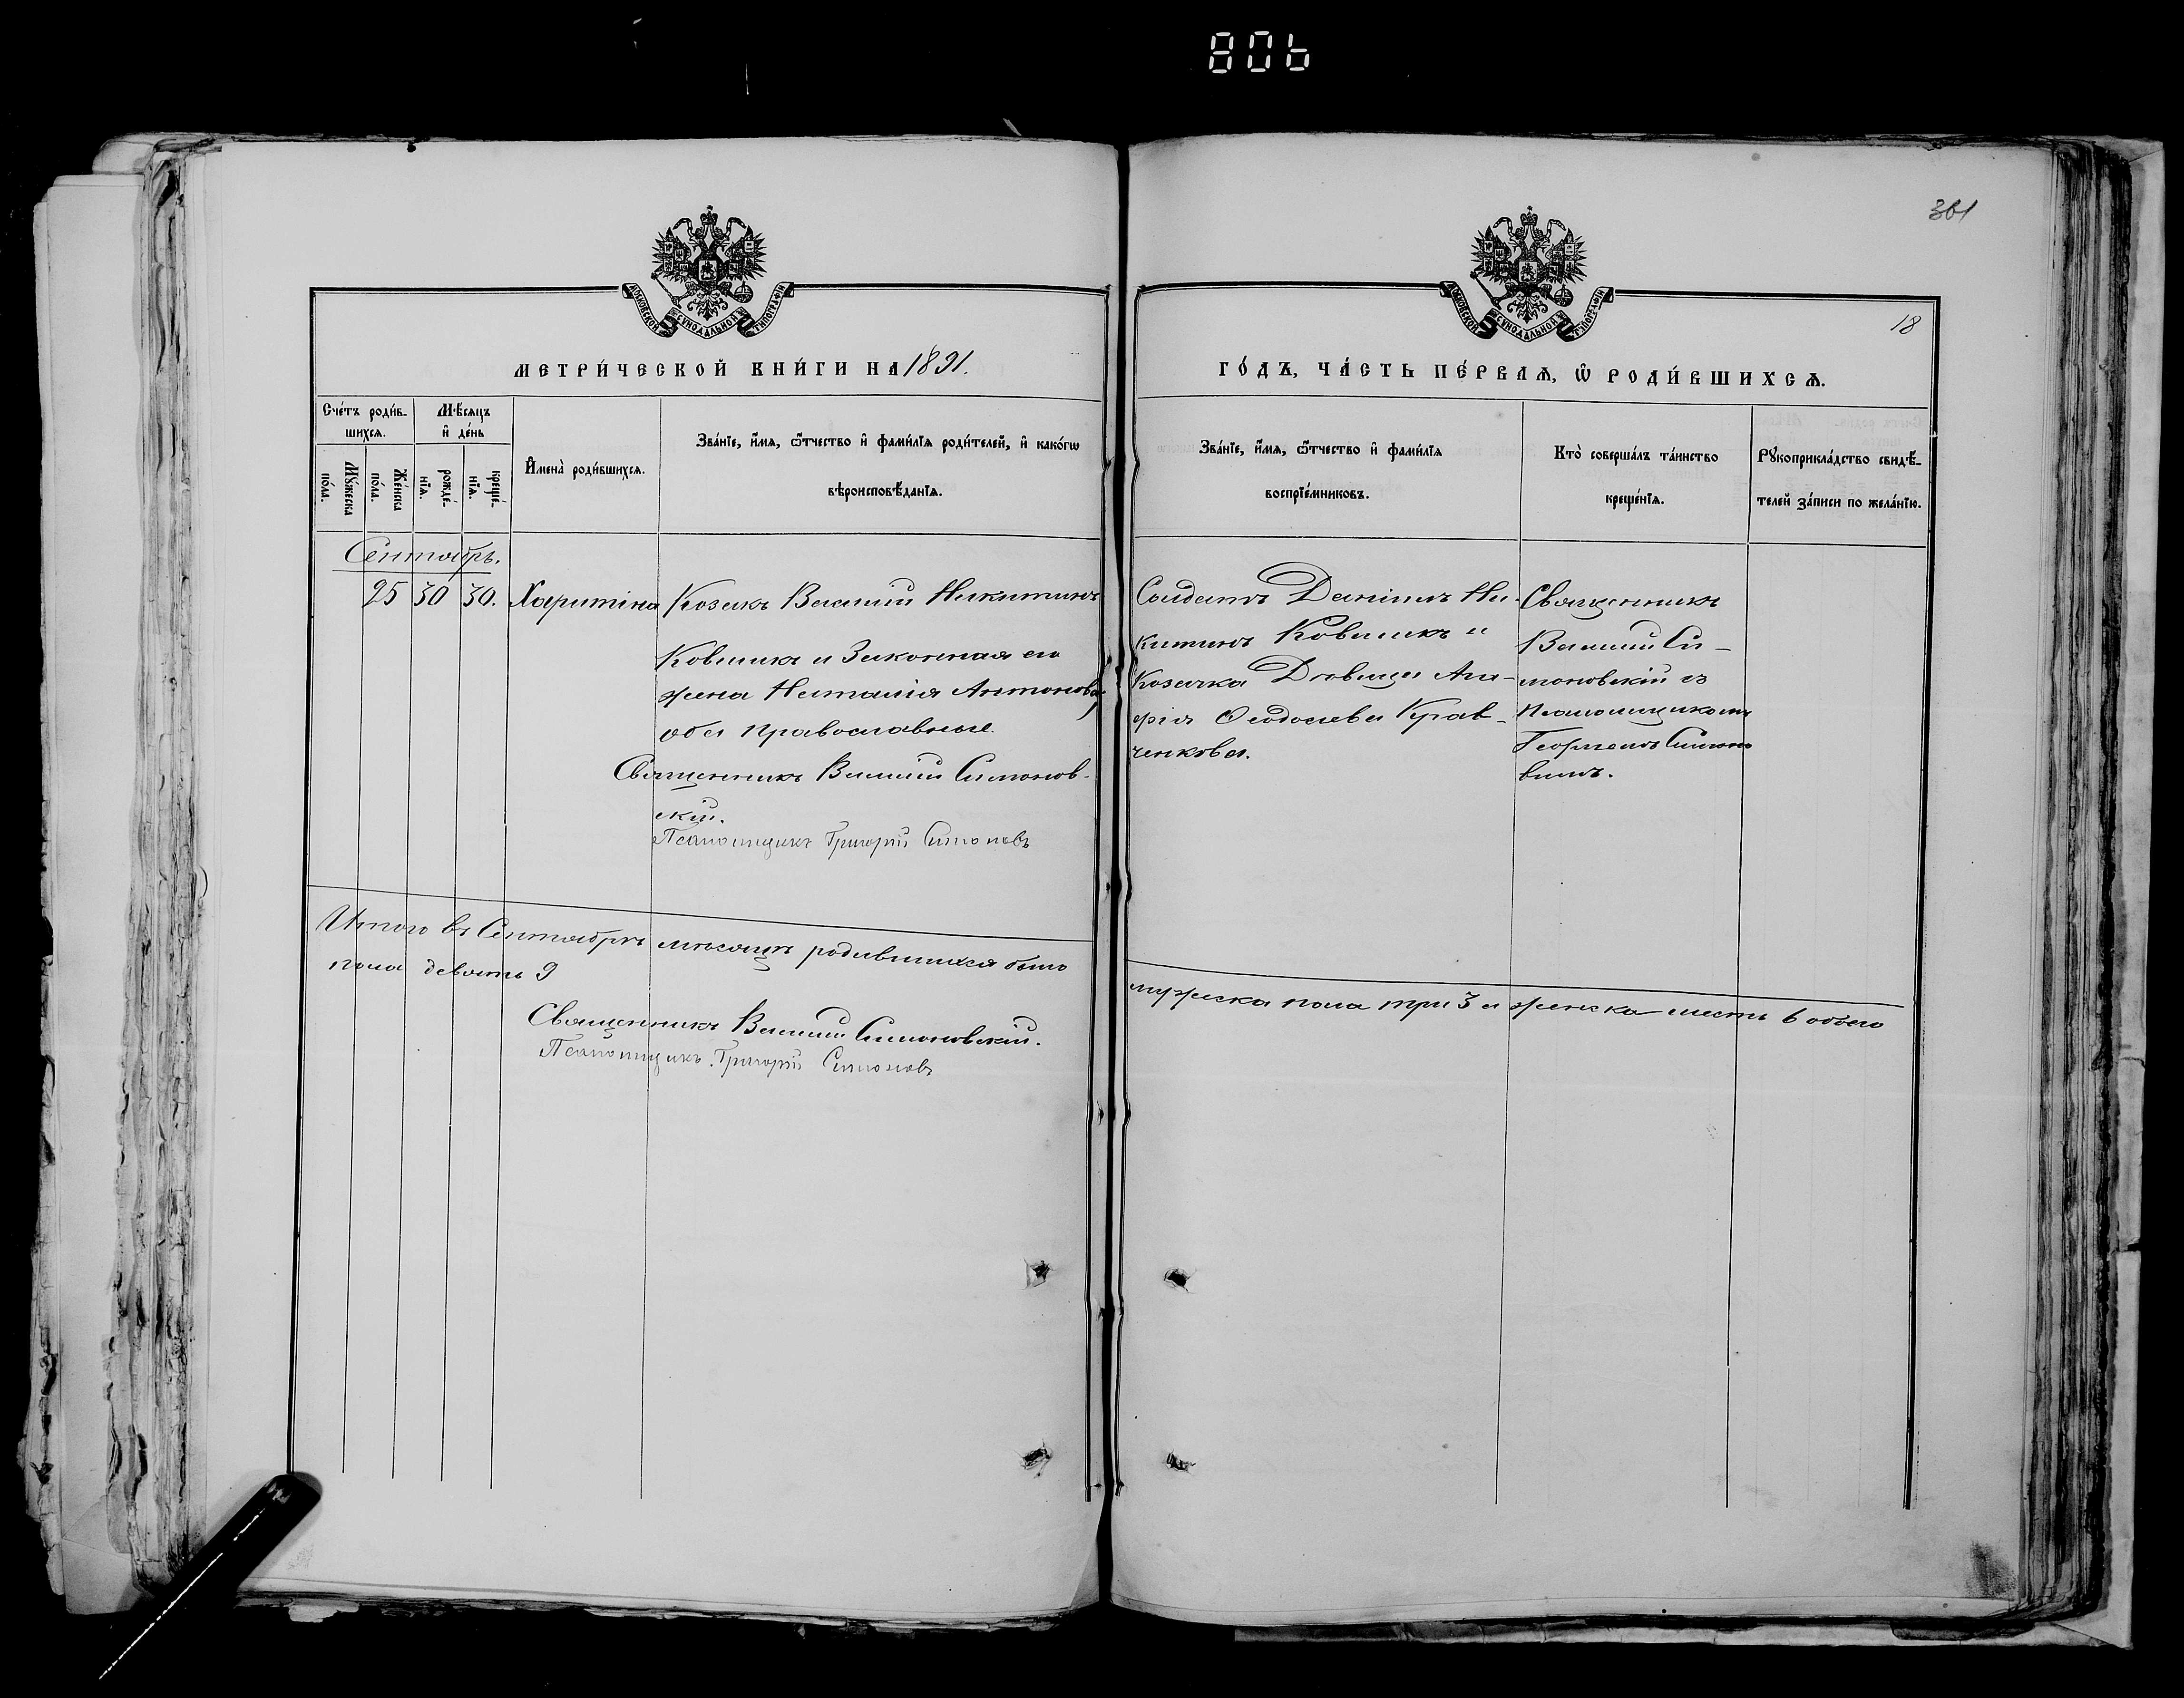 806
361
18
МОСКОВСКОЙ СУНОДАЛЬНОЙ ТИПОГРАФІИ
МОСКОВСКОЙ СУНОДАЛЬНОЙ ТИПОГРАФІИ
МЕТРИ́ЧЕСКОЙ КНИ́ГИ НА 1891.
ГО́ДЪ, ЧА́СТЬ ПЕ́РВАѦ, Ѡ҆ РОДИ́ВШИХСѦ.
Сче́тъ роди́в-
шихсѧ.
Мꙋ́жеска
по́ла.
Же́нска
по́ла.
Мѣ́сѧцъ
и҆ де́нь
рожде́-
нїѧ.
креще́-
нїѧ.
И҆мена̀ роди́вшихсѧ.
Зва́нїе, и҆́мѧ, ѻ҆́тчество и҆ фами́лїѧ роди́телей, и҆ како́гѡ
вѣроисповѣ́данїѧ.
Зва́нїе, и҆́мѧ, ѻ҆́тчество и҆ фами́лїѧ
воспрїе́мниковъ.
Кто̀ соверша́лъ та́инство
креще́нїѧ.
Рꙋкоприкла́дство свидѣ́-
телей за́писи по жела́нїю.
Сентябрь.
25 30 30. Харитина
Козакъ Василій Никитинъ
Ковшикъ и Законная его
жена Наталія Антонова,
оба Православные.
Священникъ Василій Симонов-
скій.
Псаломщикъ Григорій Симоновъ
Солдатъ Даніилъ Ни-
китинъ Ковшикъ и
Козачка Дѣвица
Ѳеодосіева Крав-
ченкова.
Священникъ
Василій Си-
моновскій съ
Псаломщикомъ
вымъ.
Итого въ Сентябрѣ мѣсяцѣ родившихся было
мужеска пола три 3 и женска шесть 6 обоего
пола девять 9
Священникъ Василій Симоновскій.
Псаломщикъ Григорій Симоновъ